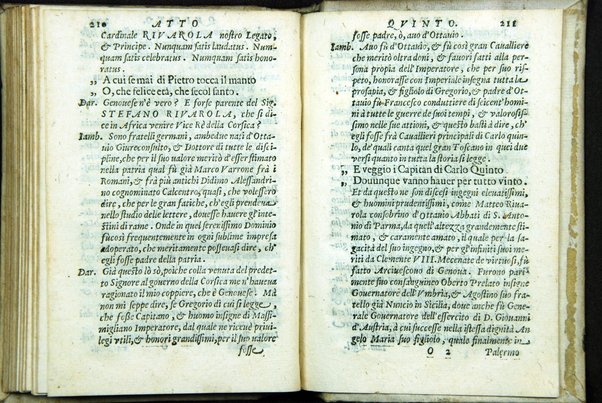 210 ATTO
Cardinale RIVAROLA nostro Legato,
& Principe. Nunquam satis laudatus. Nunquam
satis celebratus. Nunquam satis hono-
ratus.
„ A cui se mai di Pietro tocca il manto
„ O, che felice età, che secol santo.
Dar. Genouese n'è vero? E forse parente del Sig.
STEFANO RIVAROLA, che si di-
ce in Africa venire Vice Rè della Corsica?
Iamb. Sono fratelli germani, ambedue nati d'Otta-
uio Giureconsulto, & Dottore di tutte le disci-
pline, che per il suo valore meritò d'esser stimato
nella patria qual fù già Marco Varrone frà i
Romani, & frà più antichi Didimo Alessandri-
no cognominato Calcentro, quasi, che volesser
dire, che per le gran fatiche, ch'egli prendeua
nello studio delle lettere, douesse hauere gl'inte-
stini di rame. Onde in quel serenissimo Dominio
fù così frequentemente in ogni sublime impresa
adoperato, che meritamente posseuasi dire, ch'
egli fosse padre della patria.
Dar. Già questo lo sò, poiche colla venuta del predetto
Signore al gouerno della Corsica me n'haueua
ragionato il mio coppiere, che è Genouese: Mà
non mi seppe dire, se Gregorio di cui si legge,
che fosse Capitano, & huomo insigne di Massi-
migliano Imperatore, dal quale ne riceuè priui-
legi vtili, & honori grandissimi, per il suo valore
fosse
QVINTO. 211
fosse padre, ò, auo d'Ottauio.
Iamb. Auo fù d'Ottauio, & fù così gran Caualliere
che meritò oltra doni, & fauori fatti alla per-
sona propia dell'Imperatore, che per suo ris-
peto, honorasse con Imperiale insegna tutta la
prosapia, & figliolo di Gregorio, & padre d'Ot-
tauio fù Francesco conduttiere di seicent'homi-
ni à tutte le guerre de' suoi tempi, & valorosis-
simo nelle sue attioni, & questo basti à dire, ch'
egli fosse frà Cauallieri principali di Carlo quin-
to, de' quali canta quel gran Toscano in quei due
versi quanto in tutta la storia si legge.
„ E veggio i Capitan di Carlo Quinto
„ Douunque vanno hauer per tutto vinto.
Et da questo ne son discesi ingegni eleuatissimi,
& huomini prudentissimi, come Matteo Riua-
rola consobrino d'Ottauio Abbati di S. Antonio
di Parma, da quell'altezza grandemente sti-
mato, & caramente amato, il quale per la sa-
gacità del suo ingegno, & per gl'infiniti suoi meri-
ti da Clemente VIII. Mecenate de virtuosi, fù
fatto Arciuescouo di Genoua. Furono pari-
mente suoi consobrini Oberto Prelato insigne
Gouernatore dell'Vmbria, & Agostino suo fra-
tello già Nuncio in Sicilia, doue anche fù Gene-
rale Gouernatore dell'essercito di D. Giouanni
d'Austria, à cui successe nella istessa dignità An-
gelo Maria suo figliolo, quale finalmente in
O 2 Palermo